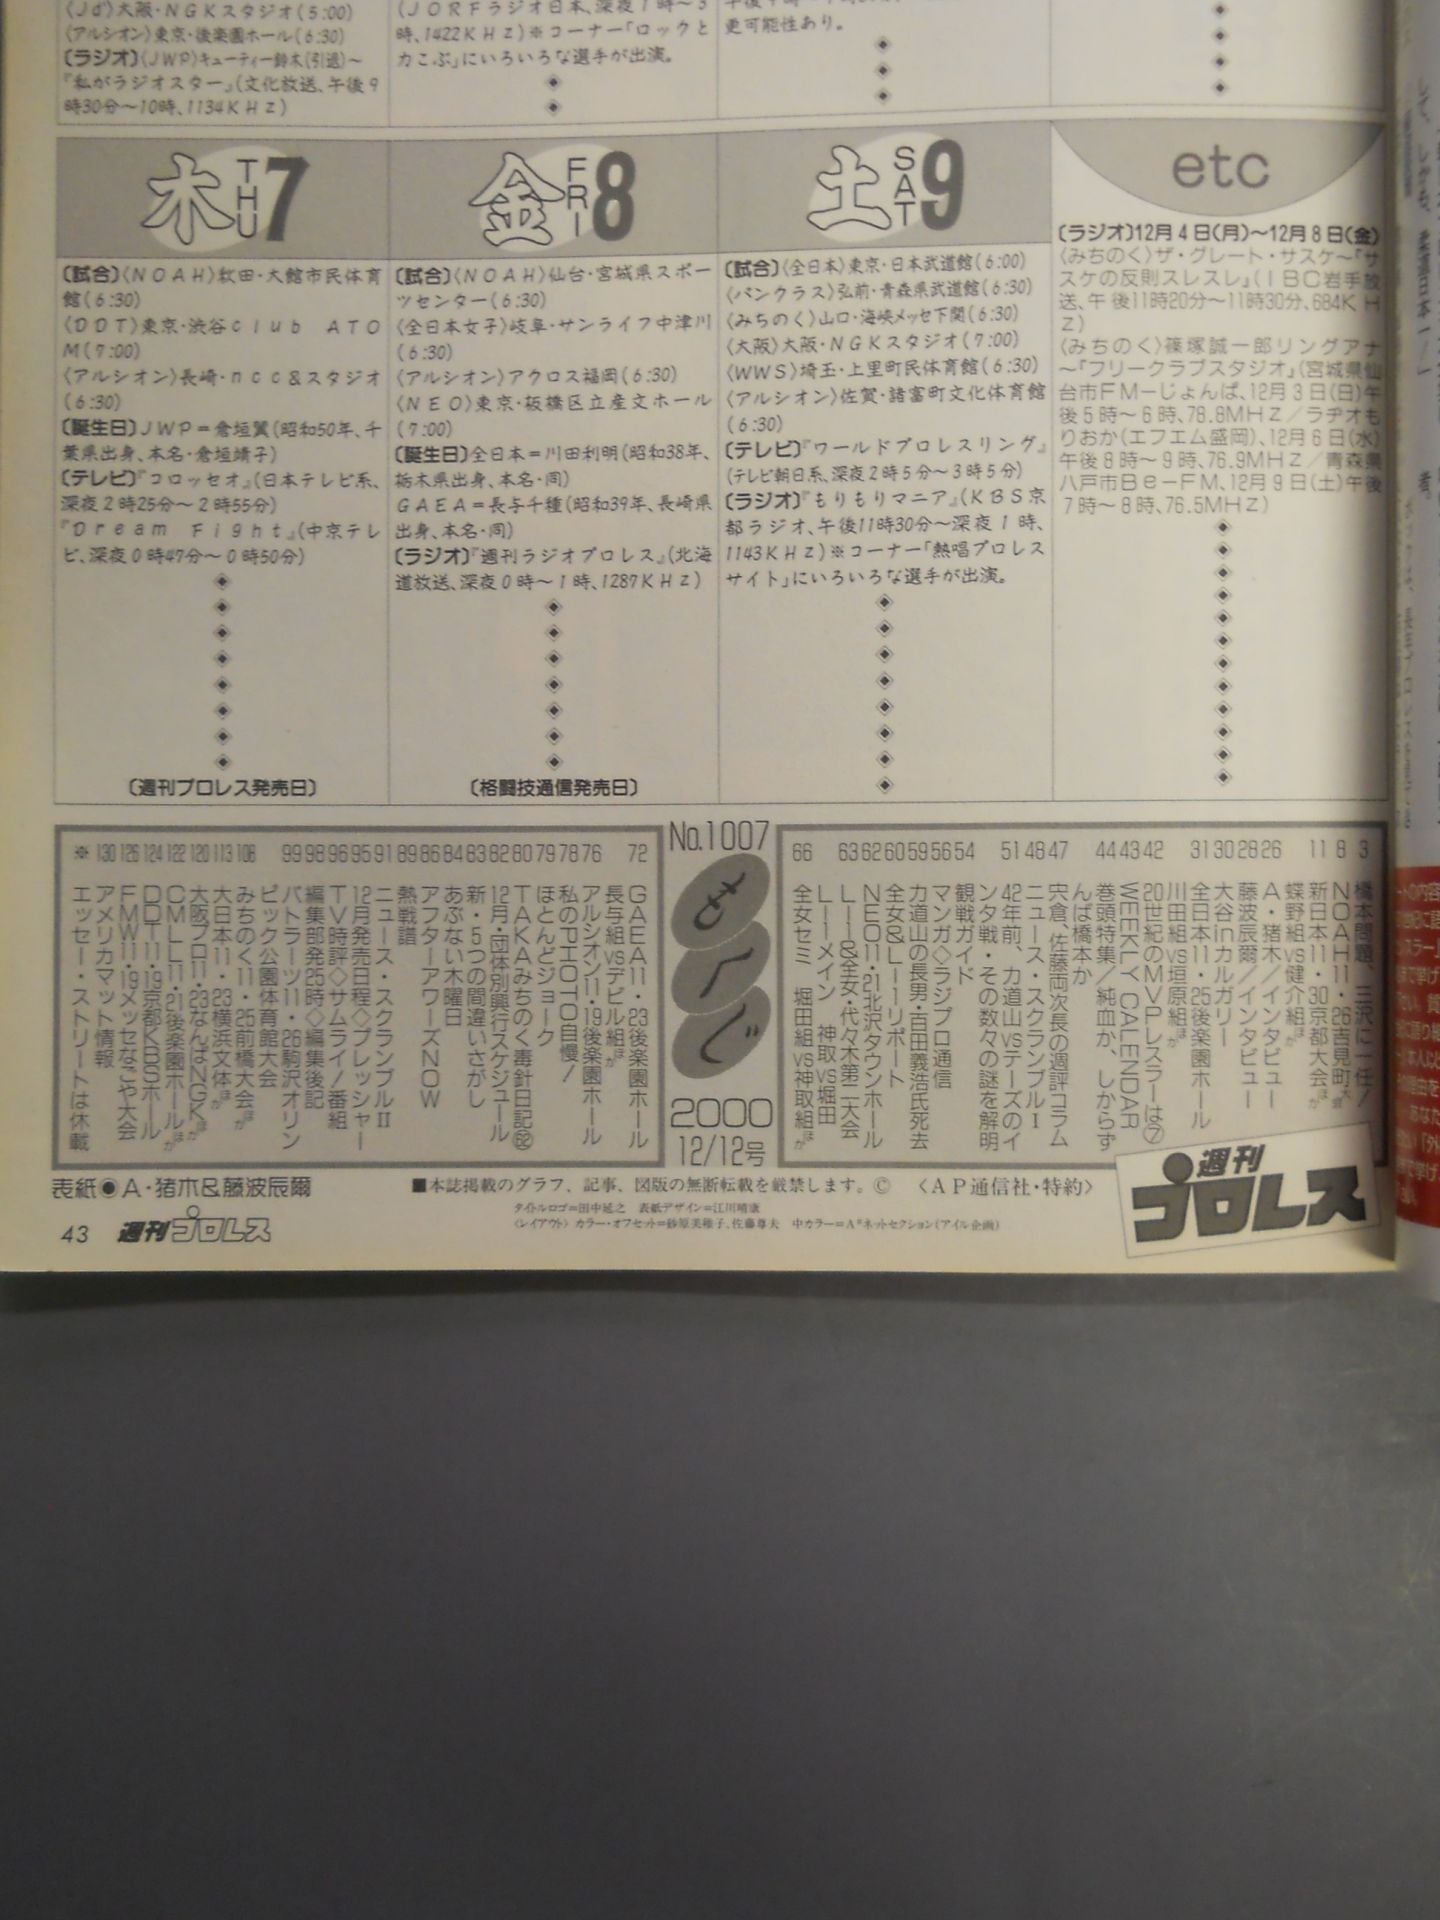 〈Jd'〉大阪・NGKスタジオ(5:00)
〈アルシオン〉東京・後楽園ホール(6:30)
〔ラジオ〕〈JWP〉キューティー鈴木(引退)〜
『私がラジオスター』(文化放送、午後9
時30分〜10時、1134KHz)
(JORFラジオ日本、深夜1時〜3
時、1422KHz)※コーナー「ロックと
力こぶ」にいろいろな選手が出演。
更可能性あり。
木 THU 7
〔試合〕〈NOAH〉秋田・大館市民体育
館(6:30)
〈DDT〉東京・渋谷club ATO
M(7:00)
〈アルシオン〉長崎・ncc&スタジオ
(6:30)
〔誕生日〕JWP=倉垣翼(昭和50年、千
葉県出身、本名・倉垣靖子)
〔テレビ〕『コロッセオ』(日本テレビ系、
深夜2時25分〜2時55分)
『Dream Fight』(中京テレ
ビ、深夜0時47分〜0時50分)
〔週刊プロレス発売日〕
金 FRI 8
〔試合〕〈NOAH〉仙台・宮城県スポー
ツセンター(6:30)
〈全日本女子〉岐阜・サンライフ中津川
(6:30)
〈アルシオン〉アクロス福岡(6:30)
〈NEO〉東京・板橋区立産文ホール
(7:00)
〔誕生日〕全日本=川田利明(昭和38年、
栃木県出身、本名・同)
GAEA=長与千種(昭和39年、長崎県
出身、本名・同)
〔ラジオ〕『週刊ラジオプロレス』(北海
道放送、深夜0時〜1時、1287KHz)
〔格闘技通信発売日〕
土 SAT 9
〔試合〕〈全日本〉東京・日本武道館(6:00)
〈パンクラス〉弘前・青森県武道館(6:30)
〈みちのく〉山口・海峡メッセ下関(6:30)
〈大阪〉大阪・NGKスタジオ(7:00)
〈WWS〉埼玉・上里町民体育館(6:30)
〈アルシオン〉佐賀・諸富町文化体育館
(6:30)
〔テレビ〕『ワールドプロレスリング』
(テレビ朝日系、深夜2時5分〜3時5分)
〔ラジオ〕『もりもりマニア』(KBS京
都ラジオ、午後11時30分〜深夜1時、
1143KHz)※コーナー「熱唱プロレス
サイト」にいろいろな選手が出演。
etc
〔ラジオ〕12月4日(月)〜12月8日(金)
〈みちのく〉ザ・グレート・サスケ〜『サ
スケの反則スレスレ』(IBC岩手放
送、午後11時20分〜11時30分、684KH
z)
〈みちのく〉篠塚誠一郎リングアナ
〜『フリークラブスタジオ』(宮城県仙
台市FMーじょんぱ、12月3日(日)午
後5時〜6時、78.8MHz/ラヂオも
りおか(エフエム盛岡)、12月6日(水)
午後8時〜9時、76.9MHz/青森県
八戸市Be-FM、12月9日(土)午後
7時〜8時、76.5MHz)
3 橋本問題、三沢に一任!
8 NOAH11・26吉見町大会
11 新日本11・30京都大会ほか
蝶野組vs健介組ほか
26 A・猪木/インタビュー
28 藤波辰爾/インタビュー
30 大谷inカルガリー
31 全日本11・25後楽園ホール
川田組vs垣原組ほか
42 20世紀のMVPレスラーは⑦
43 WEEKLY CALENDAR
44 巻頭特集/純血か、しからず
んば橋本か
47 宍倉、佐藤両次長の週評コラム
48 ニュース・スクランブルⅠ
51 42年前、力道山vsテーズのイ
ンタ戦・その数々の謎を解明
54 観戦ガイド
56 マンガ◇ラジプロ通信
59 力道山の長男・百田義浩氏死去
60 全女&LLーリポート
62 NEO11・21北沢タウンホール
63 LL&全女・代々木第二大会
LLーメイン 神取vs堀田
66 全女セミ 堀田組vs神取組ほか
No.1007
もくじ
2000
12/12号
72 GAEA11・23後楽園ホール
長与組vsデビル組ほか
76 アルシオン11・19後楽園ホール
78 私のPHOTO自慢!
79 ほとんどジョーク
80 TAKAみちのく毒針日記62
82 12月・団体別興行スケジュール
83 新・5つの間違いさがし
84 あぶない木曜日
86 アフターアワーズNOW
89 熱戦譜
91 ニュース・スクランブルⅡ
95 12月発売日程◇プレッシャー
96 TV時評◇サムライ!番組
98 編集部発25時◇編集後記
99 バトラーツ11・26駒沢オリン
ピック公園体育館大会
108 みちのく11・25前橋大会ほか
113 大日本11・23横浜文体ほか
120 大阪プロ11・23なんばNGKほか
122 CMLL11・21後楽園ホールほか
124 DDT11・19京都KBSホール
126 FMW11・19メッセなごや大会
130 アメリカマット情報
※ エッセー・ストリートは休載
表紙●A・猪木&藤波辰爾
■本誌掲載のグラフ、記事、図版の無断転載を厳禁します。© 〈AP通信社・特約〉
タイトルロゴ=田中延之 表紙デザイン=江川晴康
〈レイアウト〉カラー・オフセット=砂原美稚子、佐藤尊夫 中カラー=A*ネットセクション(アイル企画)
週刊プロレス
43 週刊プロレス